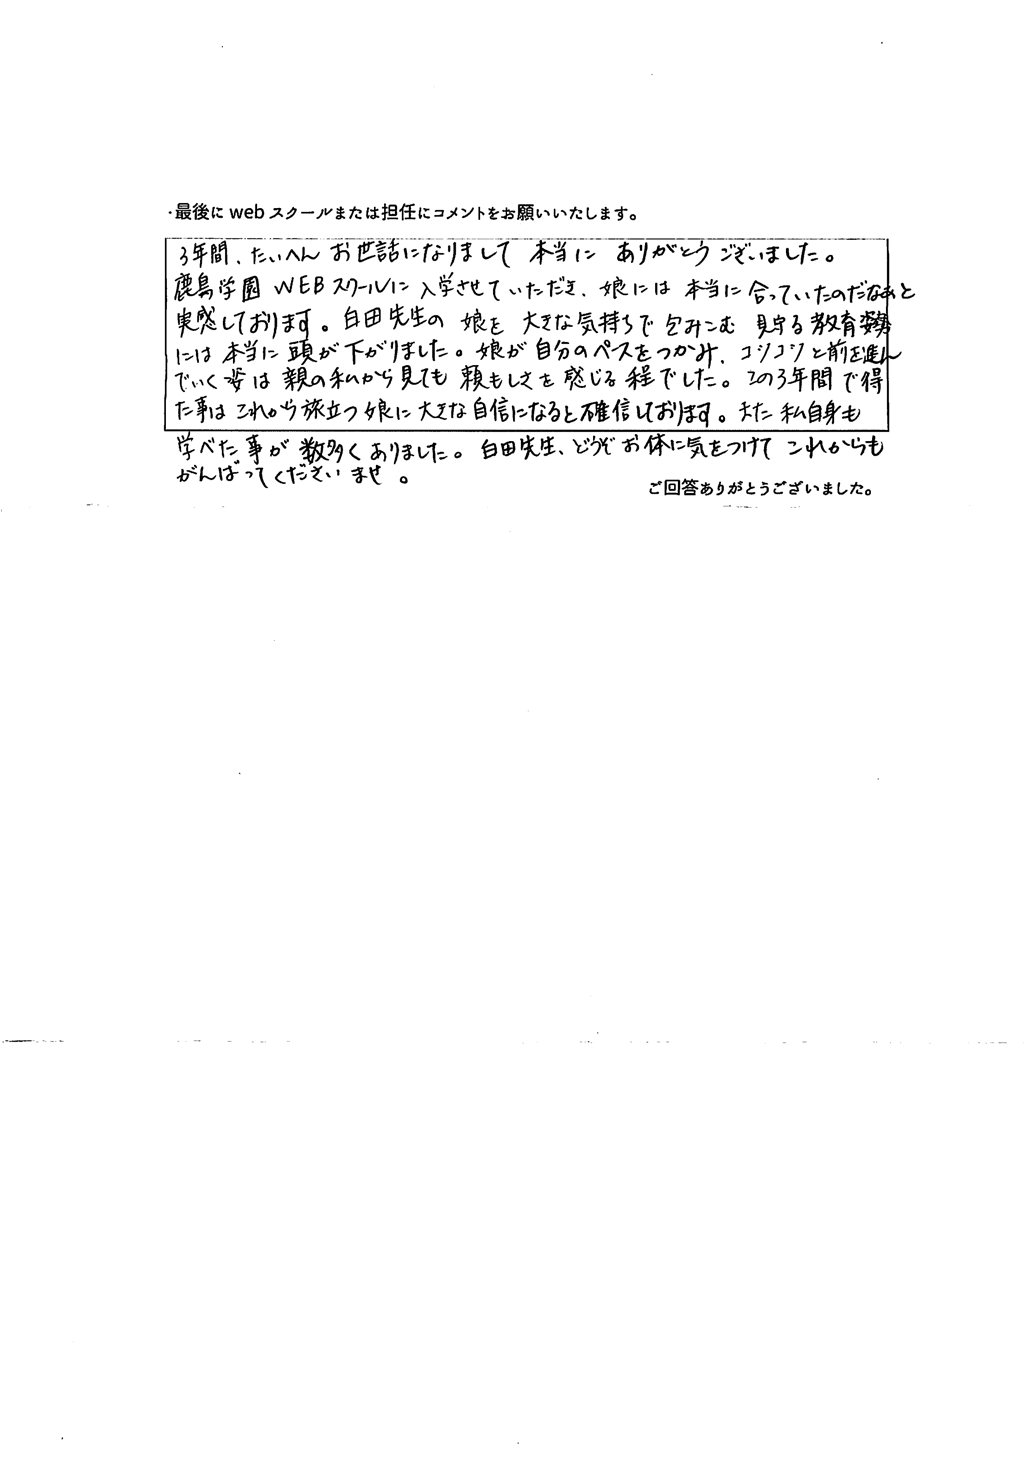 ・最後に web スクールまたは担任にコメントをお願いいたします。
3年間、たいへん お世話になりまして 本当に ありがとう ございました。
鹿島学園 WEBスクールに 入学させていただき、娘には 本当に 合っていたのだなぁと
実感しております。白田先生の 娘を 大きな気持ちで 包みこむ 見守る 教育姿勢
には 本当に 頭が 下がりました。娘が 自分のペースをつかみ、コツコツと前を進ん
でいく姿は 親の私から見ても 頼もしさを感じる 程でした。この3年間で得
た事は これから旅立つ娘に大きな自信になると確信しております。また 私自身も
学べた事が 数多くありました。白田先生、どうぞお体に気をつけて これからも
がんばってくださいませ。
ご回答ありがとうございました。